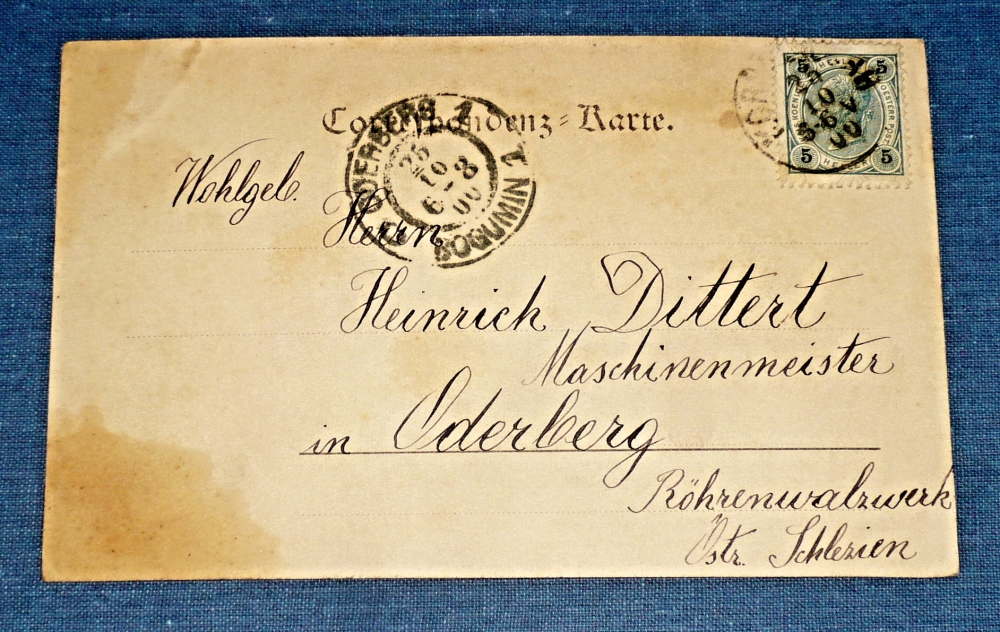 Correspondenz-Karte.
ODERBERG 1
BOGUMIN 1
25
10
6-8
00
5 HELLER 5
OESTERR. POST
5 HELLER 5
10
00
Wohlgeb.
Herrn
Heinrich Dittert
Maschinenmeister
in Oderberg
Röhrenwalzwerk
Östr. Schlesien